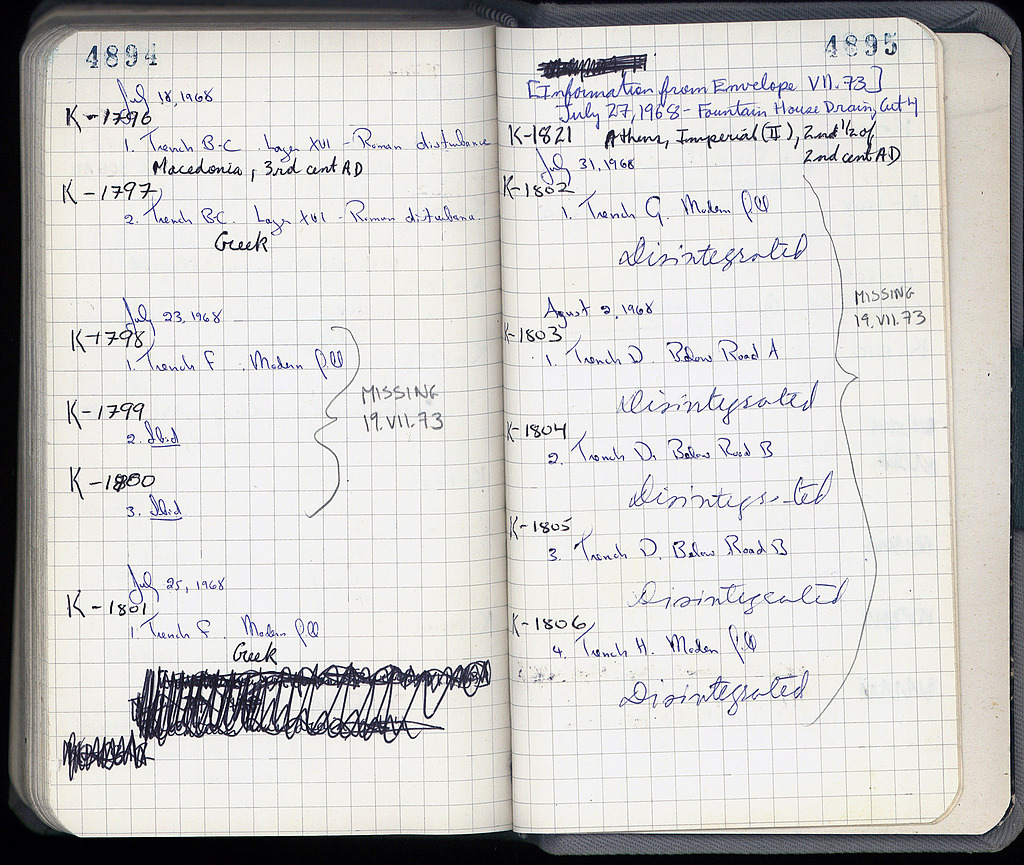 4894
July 18, 1968
K-1796
1. Trench B-C. Layer XVI - Roman disturbance
Macedonia, 3rd cent AD
K-1797
2. Trench B-C. Layer XVI - Roman disturbance.
Greek
July 23, 1968
K-1798
1. Trench F. Modern fill
K-1799
2. Ibid
K-1800
3. Ibid
MISSING
19.VII.73
July 25, 1968
K-1801
1. Trench F. Modern fill
Greek
4895
[Information from Envelope VII.73]
July 27, 1968 - Fountain House Drain, Cut 4
K-1821 Athens, Imperial (II), 2nd ½ of
2nd cent AD
July 31, 1968
K-1802
1. Trench G. Modern fill
Disintegrated
August 2, 1968
K-1803
1. Trench D. Below Road A
Disintegrated
K-1804
2. Trench D. Below Road B
Disintegrated
K-1805
3. Trench D. Below Road B
Disintegrated
K-1806
4. Trench H. Modern fill
Disintegrated
MISSING
19.VII.73